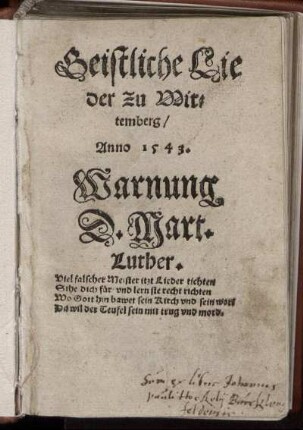 Geistliche Lie
der zu Wit⸗
temberg/
Anno 1543.
Warnung
D. Mart.
Luther.
Viel falscher Meister itzt Lieder tichten
Sihe dich für/ vnd lern sie recht richten
Wo Gott hin bawet sein Kirch vnd sein wort
Da wil der Teufel sein mit trug vnd mord.
liber Johannis